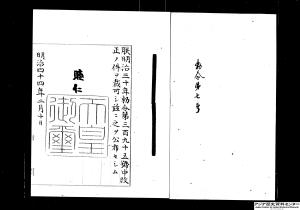 勅令第七号
朕明治三十年勅令第三百九十五號中改
正ノ件ヲ裁可シ茲ニ之ヲ公布セシム
睦仁
天皇
御璽
明治四十四年二月十日
アジア歴史資料センター